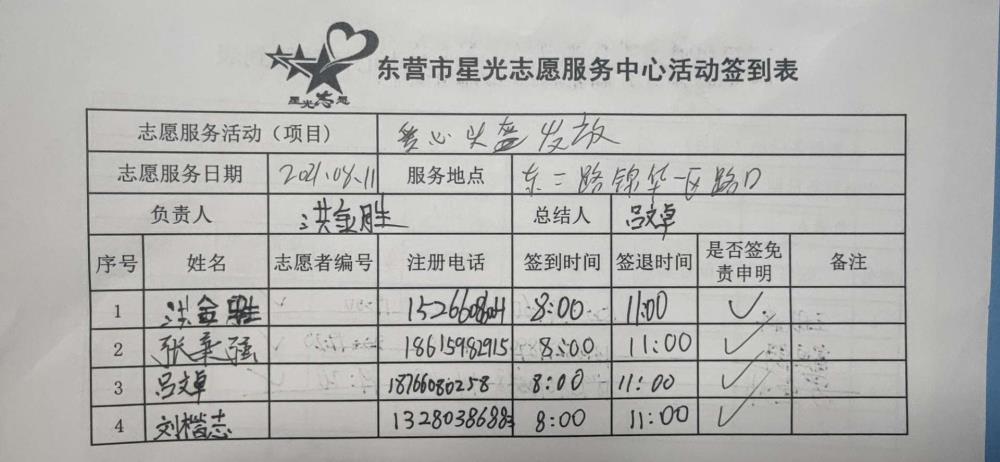 星光志愿
东营市星光志愿服务中心活动签到表
志愿服务活动（项目） 爱心头盔发放
志愿服务日期 2021.04.11 服务地点 东二路锦华一区路口
负责人 洪金胜 总结人 吕文卓
序号 姓名 志愿者编号 注册电话 签到时间 签退时间 是否签免责申明 备注
1 洪金胜 8:00 11:00 ✓
2 张 强 18615982915 8:00 11:00 ✓
3 吕文卓 18766080258 8:00 11:00 ✓
4 刘楷志 13280386883 8:00 11:00 ✓